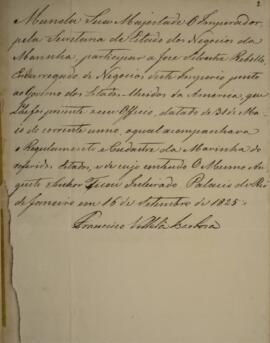 2.
Manda Sua Magestade O Imperador,
pela Secretaria de Estado dos Negocios da
Marinha, participar a Jose Silvestre Rebello
Encarregado de Negocios deste Imperio junto
ao Governo dos Estados Unidos da America, que
Lhe foi presente o seu Officio, datado de 31 de Ma
io do corrente anno, ao qual acompanhava
o Regulamento e Cadastro da Marinha dos
referidos Estados, e de cujo contheudo O Mesmo Au
gusto Senhor Ficou Inteirado. Palacio do Rio
de Janeiro em 16 de Setembro de 1825.
Francisco Villela Barbosa